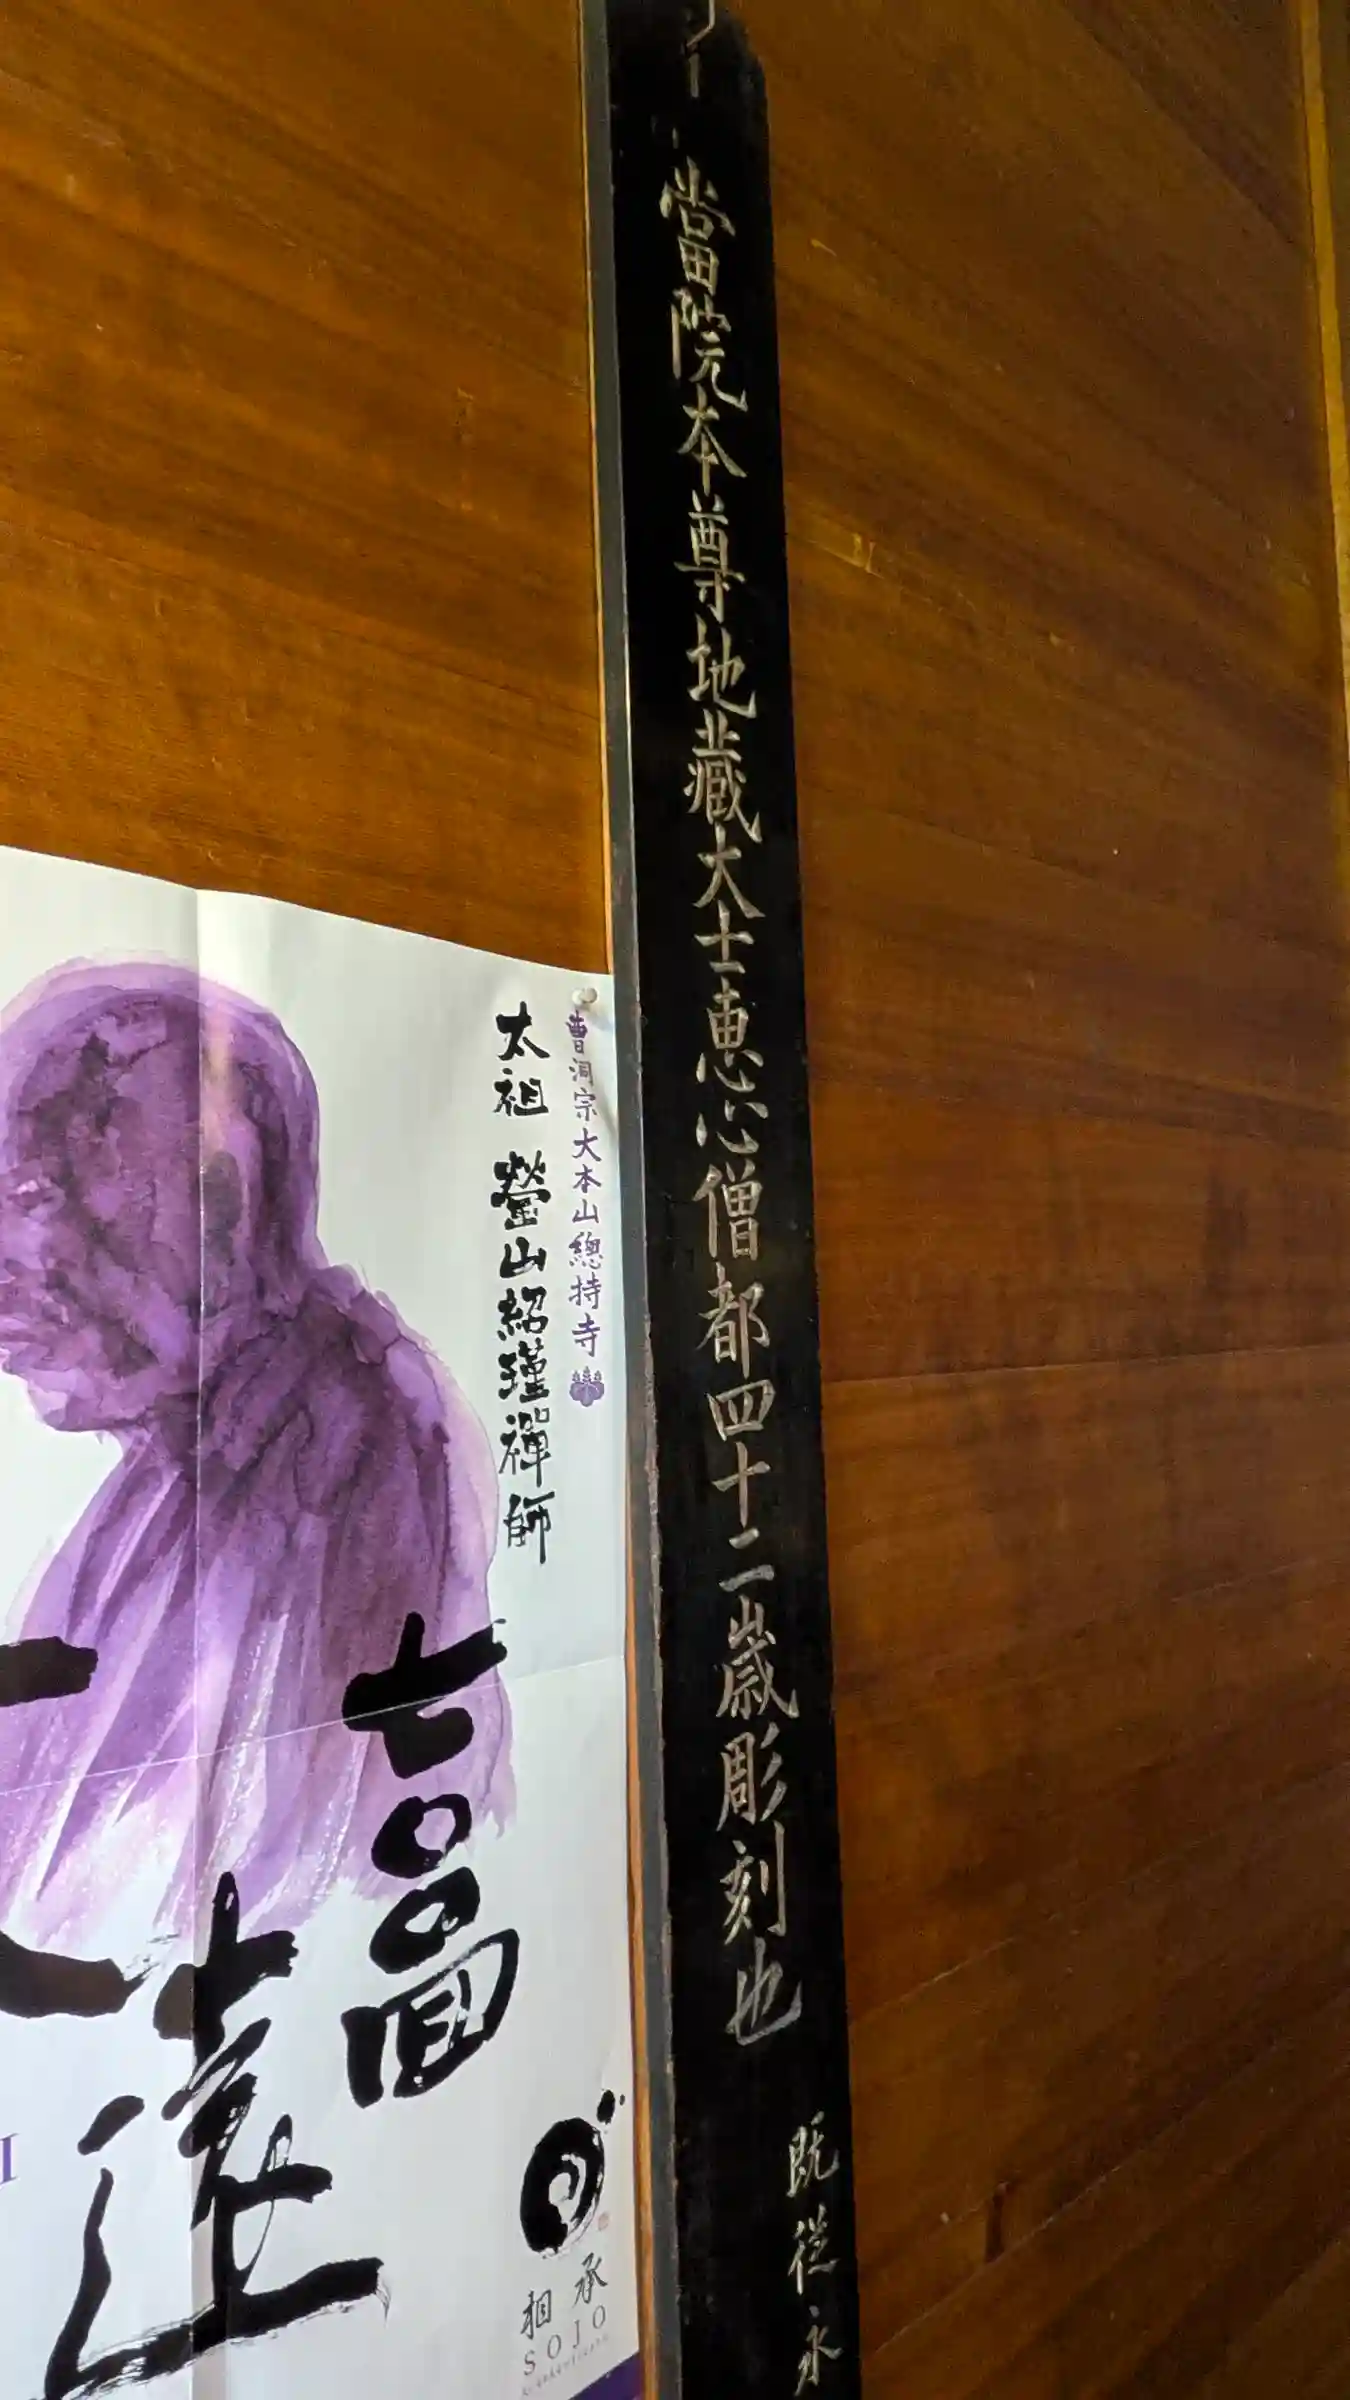 當院本尊地藏大士恵心僧都四十二歳彫刻也
既從永
曹洞宗大本山總持寺
太祖 瑩山紹瑾禪師
七〇〇回
大遠
相承
SOJO